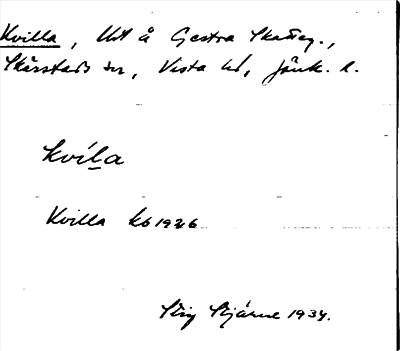 Kvilla, Utl å Gestra Skatteg.,
Skärstads sn, Vista hd, Jönk. l.
kvíl̲a
Kvilla kb 1926
Stig Stjárne 1934.